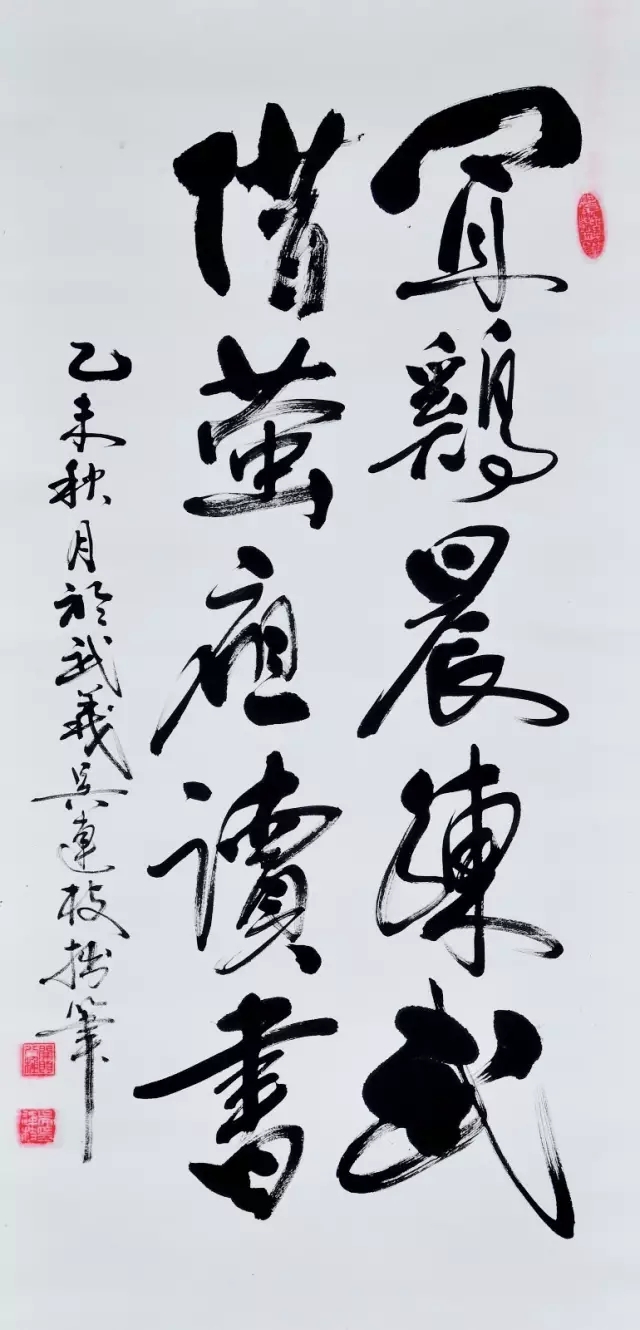 聞鷄晨練武
借萤讀書
乙未秋月於武義吳連枝拙筆